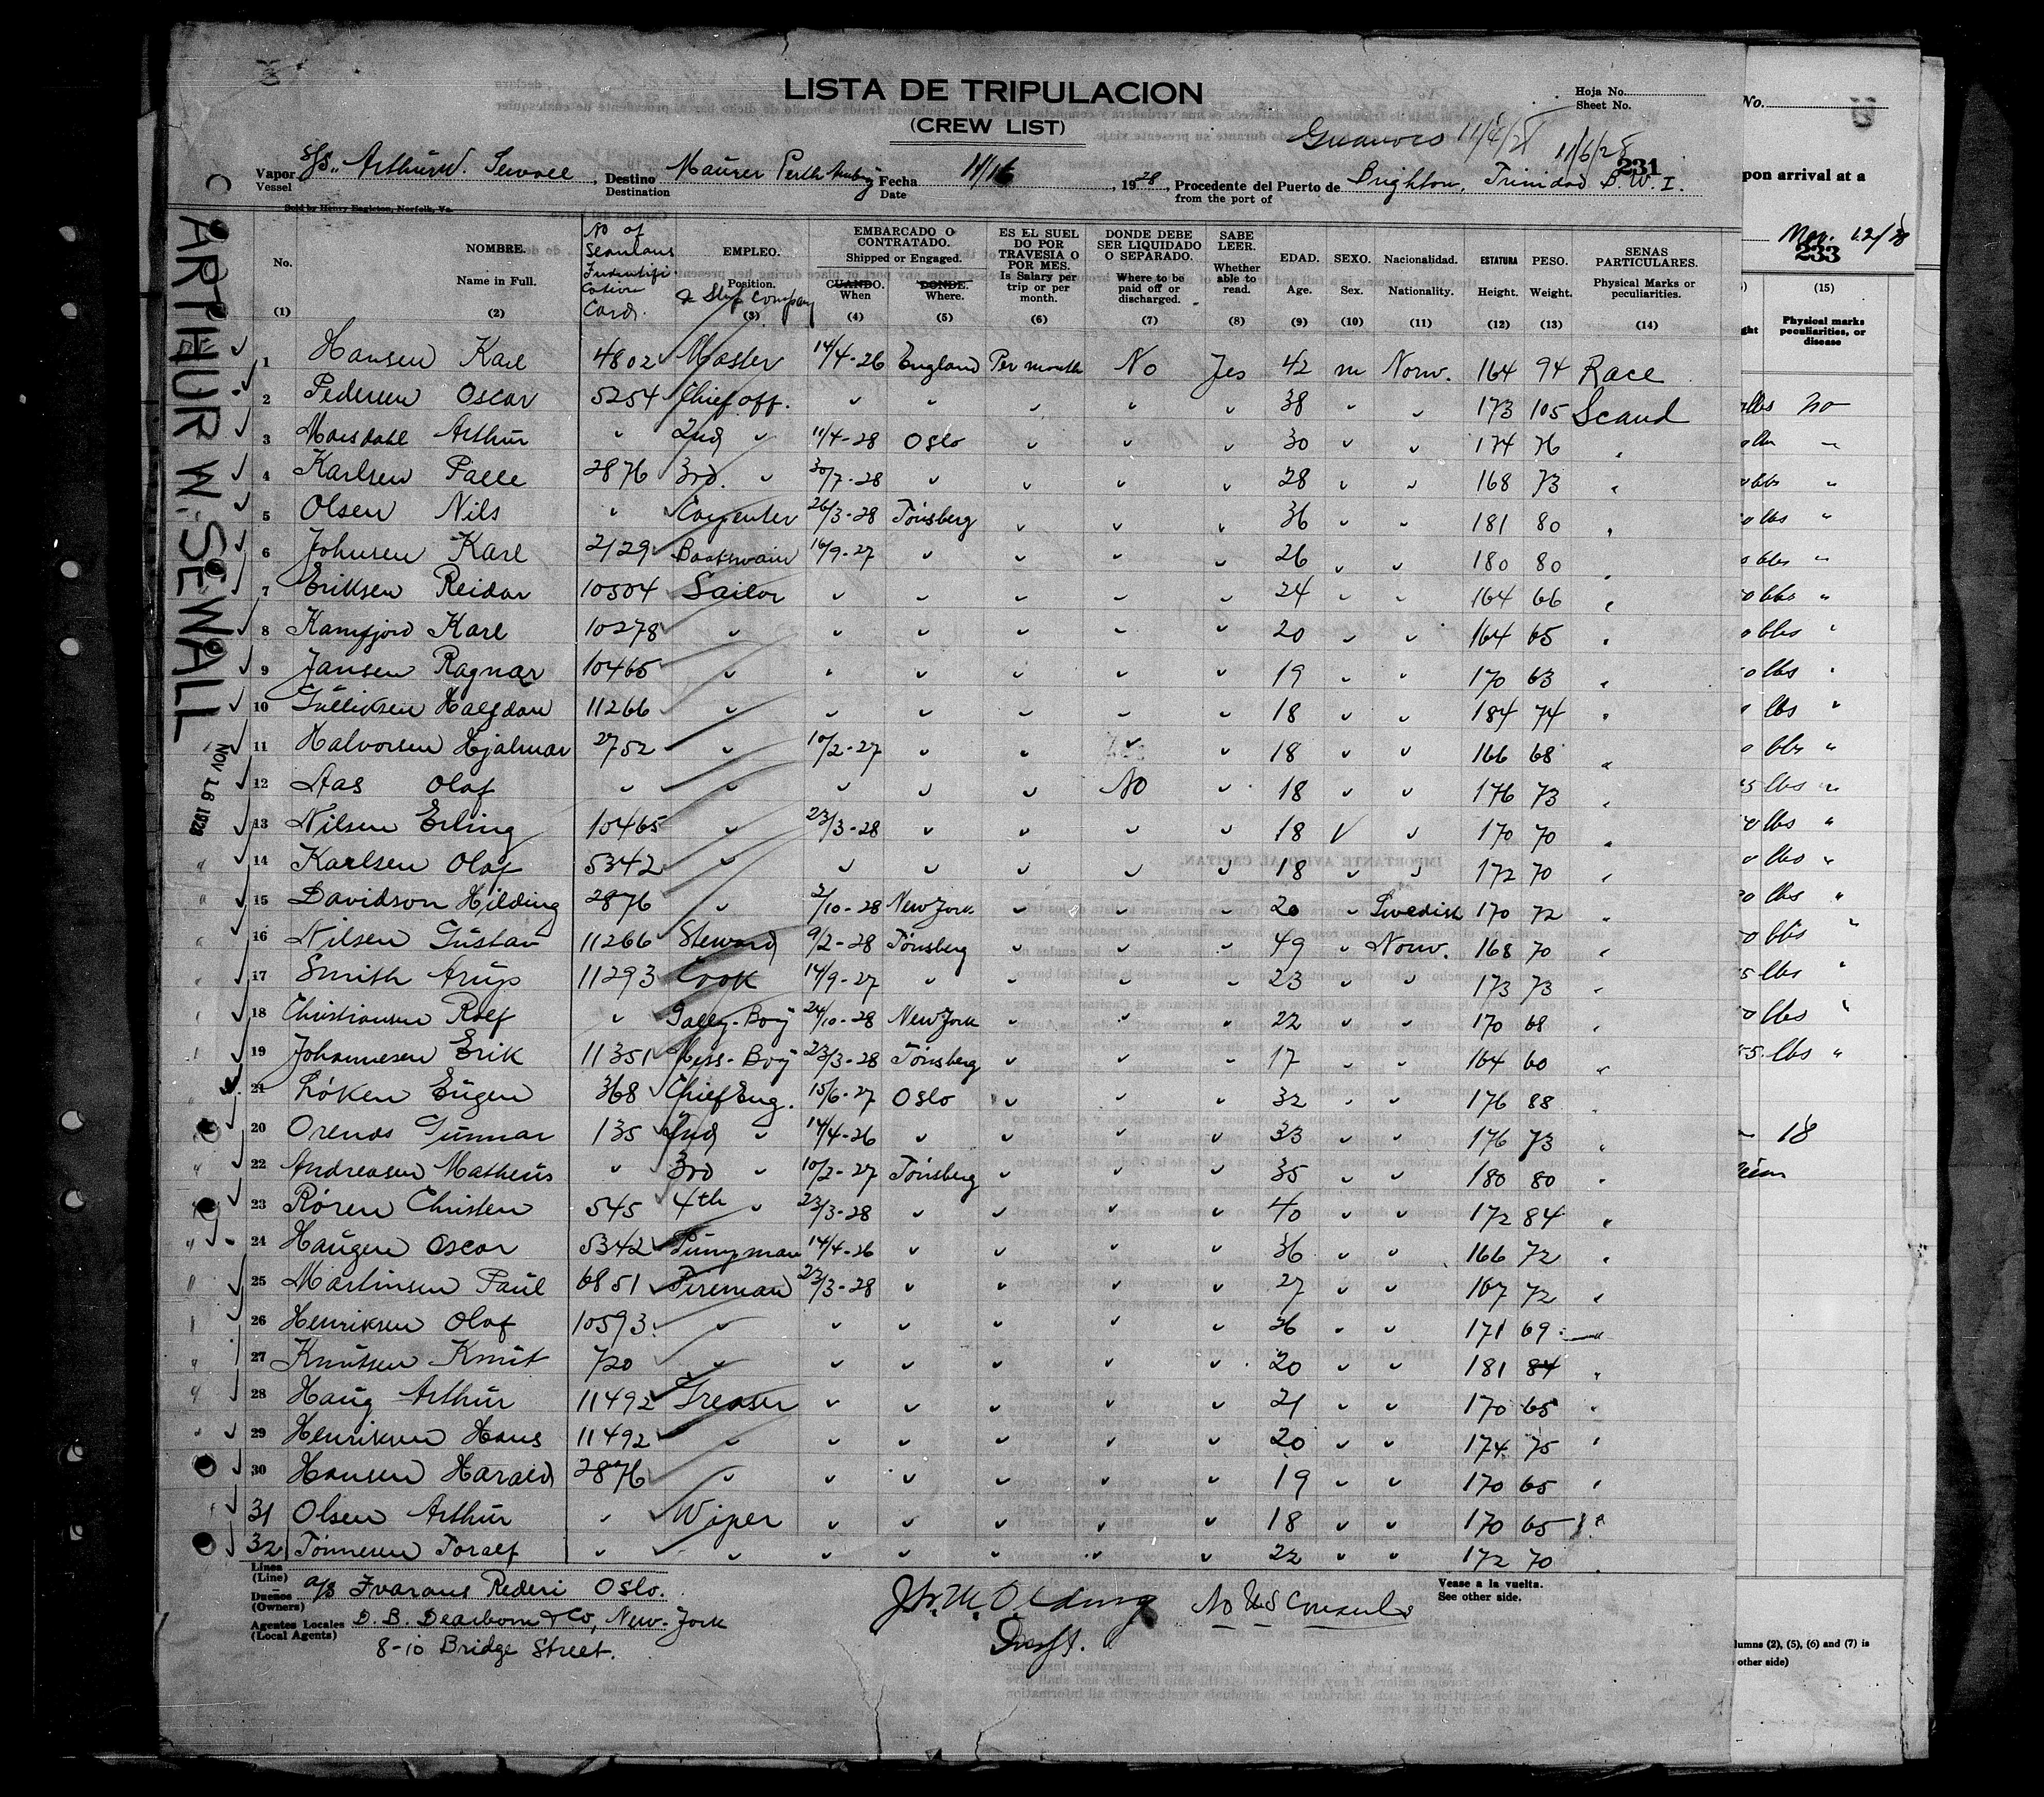 LISTA DE TRIPULACION
(CREW LIST)
Hoja No.
Sheet No.
11/6/28
231
Vapor S/S. Arthur W. Sewall, Destino Maurer Perth Amboy Fecha 11/16, 1928, Procedente del Puerto de Brighton, Trinidad B.W.I.
Vessel Destination Date from the port of
Sold by Henry Eagleton, Norfolk, Va.
No. (1) NOMBRE. Name in Full. (2) No of Seamans Indentification Card. EMPLEO. Position. (3) EMBARCADO O CONTRATADO. Shipped or Engaged. CUANDO. When (4) DONDE. Where. (5) ES EL SUELDO POR TRAVESIA O POR MES. Is Salary per trip or per month. (6) DONDE DEBE SER LIQUIDADO O SEPARADO. Where to be paid off or discharged. (7) SABE LEER. Whether able to read. (8) EDAD. Age. (9) SEXO. Sex. (10) Nacionalidad. Nationality. (11) ESTATURA Height. (12) PESO. Weight. (13) SENAS PARTICULARES. Physical Marks or peculiarities. (14)
1 Hansen Karl 4802 Master 14/4-26 England Per month No Yes 42 m Norw. 164 94 Race
2 Pedersen Oscar 5254 Chief off. " " " " " 38 " " 173 105 Scand
3 Moesdahl Arthur " 2nd " 11/4-28 Oslo " " " 30 " " 174 76 "
4 Karlsen Palle 2876 3rd. " 30/7-28 " " " " 28 " " 168 73 "
5 Olsen Nils " Carpenter 26/3-28 Tönsberg " " " 36 " " 181 80 "
6 Johnsen Karl 2129 Boatswain 16/9-27 " " " " 26 " " 180 80 "
7 Eriksen Reidar 10504 Sailor " " " " " 24 " " 164 66 "
8 Kamfjord Karl 10278 " " " " " " 20 " " 164 65 "
9 Jansen Ragnar 10465 " " " " " " 19 " " 170 63 "
10 Gulliksen Halfdan 11266 " " " " " " 18 " " 184 74 "
11 Halvorsen Hjalmar 2752 " 10/2-27 " " " " 18 " " 166 68 "
12 Aas Olaf " " " " " No " 18 " " 176 73 "
13 Nilsen Erling 10465 " 23/3-28 " " " " 18 " " 170 70 "
14 Karlsen Olaf 5342 " " " " " " 18 " " 172 70 "
15 Davidson Hilding 2876 " 2/10-28 New York " " " 20 " Swedish 170 72 "
16 Nilsen Gustav 11266 Steward 9/2-28 Tönsberg " " " 49 " Norw. 168 70 "
17 Smith Arup 11293 Cook 14/9-27 " " " " 23 " " 173 73 "
18 Christiansen Rolf " Galley-Boy 24/10-28 New York " " " 22 " " 170 68 "
19 Johannesen Erik 11351 Mess-Boy 23/3-28 Tönsberg " " " 17 " " 164 60 "
21 Løken Eugen 368 Chief Eng. 15/6-27 Oslo " " " 32 " " 176 88 "
20 Orenas Gunnar 135 2nd " 14/4-26 " " " " 33 " " 176 73 "
22 Andreasen Matheus " 3rd " 10/2-27 Tönsberg " " " 35 " " 180 80 "
23 Røren Christen 545 4th " 23/3-28 " " " " 40 " " 172 84 "
24 Haugen Oscar 5342 Pumpman 14/4-26 " " " " 36 " " 166 72 "
25 Martinsen Paul 6851 Fireman 23/3-28 " " " " 27 " " 167 72 "
26 Henriksen Olaf 10593 " " " " " " 26 " " 171 69 "
27 Knutsen Knut 720 " " " " " " 20 " " 181 84 "
28 Haug Arthur 11492 Greaser " " " " " 21 " " 170 65 "
29 Henriksen Hans 11492 " " " " " " 20 " " 174 75 "
30 Hansen Harald 2876 " " " " " " 19 " " 170 65 "
31 Olsen Arthur " Wiper " " " " " 18 " " 170 65 "
32 Tönnesen Toralf " " " " " " " 22 " " 172 70 "
Linea
(Line)
Dueños a/s Ivarans Rederi Oslo.
(Owners)
Agentes Locales D. B. Dearborn & Co, New-York
(Local Agents) 8-10 Bridge Street.
No US Consuls
Vease a la vuelta.
See other side.
ARTHUR W. SEWALL
NOV 16 1928
No.
upon arrival at a
Nov. 12/28
233
(15)
Physical marks peculiarities, or disease
18
(2), (5), (6) and (7) is
other side)